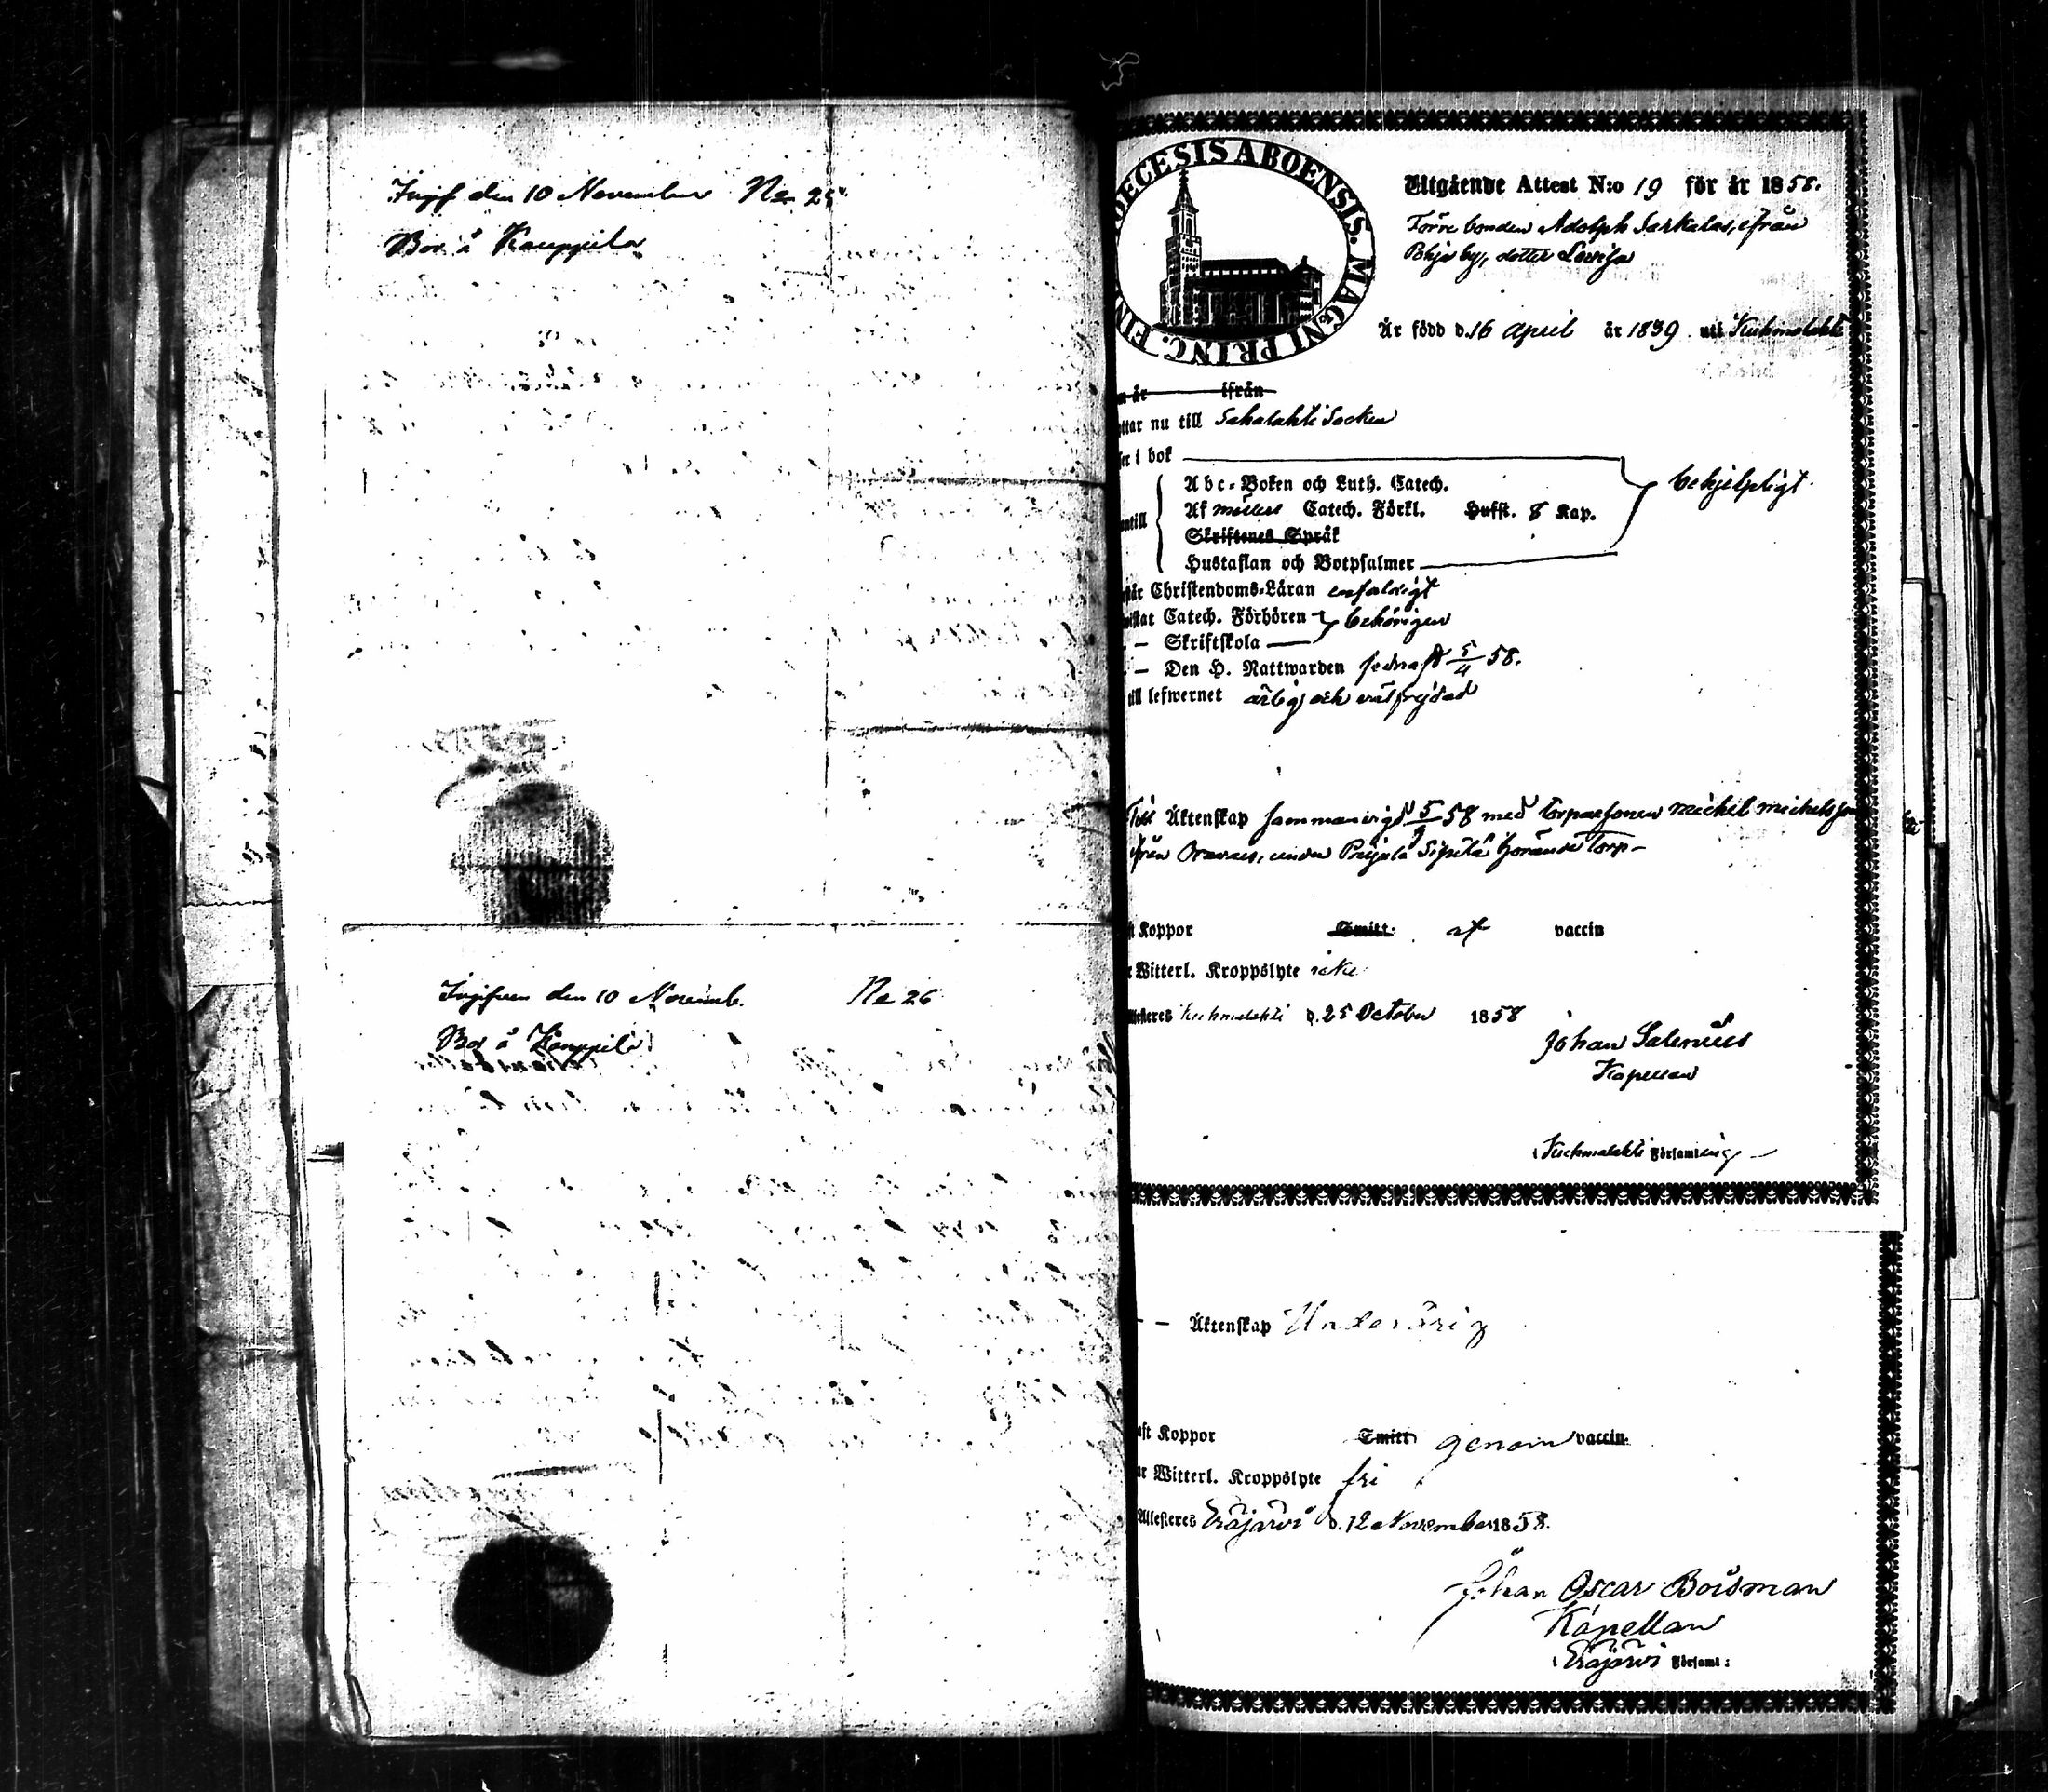 Ingif den 10 November No 25
Bor å Kauppila
Ingifven den 10 Novemb. No 26
Bor å Kauppila
DECESIS ABOENSIS. MAGNI PRINC. FIN
Utgående Attest N:o 19 för år 1858.
Förre bonden Adolph Sarkalas, ifrån
Pohja by, dotter Lovisa
Är född d. 16 April år 1839 uti Kuhmalahti
ifrån
nu till Sahalahti Socken
i bok
behjelpligt
Abc-Boken och Luth. Catech.
Af Möllers Catech. Förkl. Hufst. 8 Kap.
Skriftenes Språk
Hustaflan och Botpsalmer
Christendoms-Läran enfaldigt
Catech. Förhören behörigen
— Skriftskola
— Den H. Nattwarden sednast 5/4 58.
till lefwernet ärlig och välfrejdad
Till Äktenskap sammanvigd 5/9 58 med torparesonen Michel Michelsson
ifrån Oravais, under Pohjala Sipilä hörande Torp
Koppor Smitt af vaccin
Witterl. Kroppslyte icke
Attesteres Kuhmalahti d. 25 October 1858
Johan Salenius
Kapellan
i Kuhmalahti Församling
— — Äktenskap Underårig
Koppor Smitt genom vaccin
Witterl. Kroppslyte fri
Attesteres Eräjärvi d. 12 November 1858.
Johan Oscar Boisman
Kapellan
i Eräjärvi Församl: